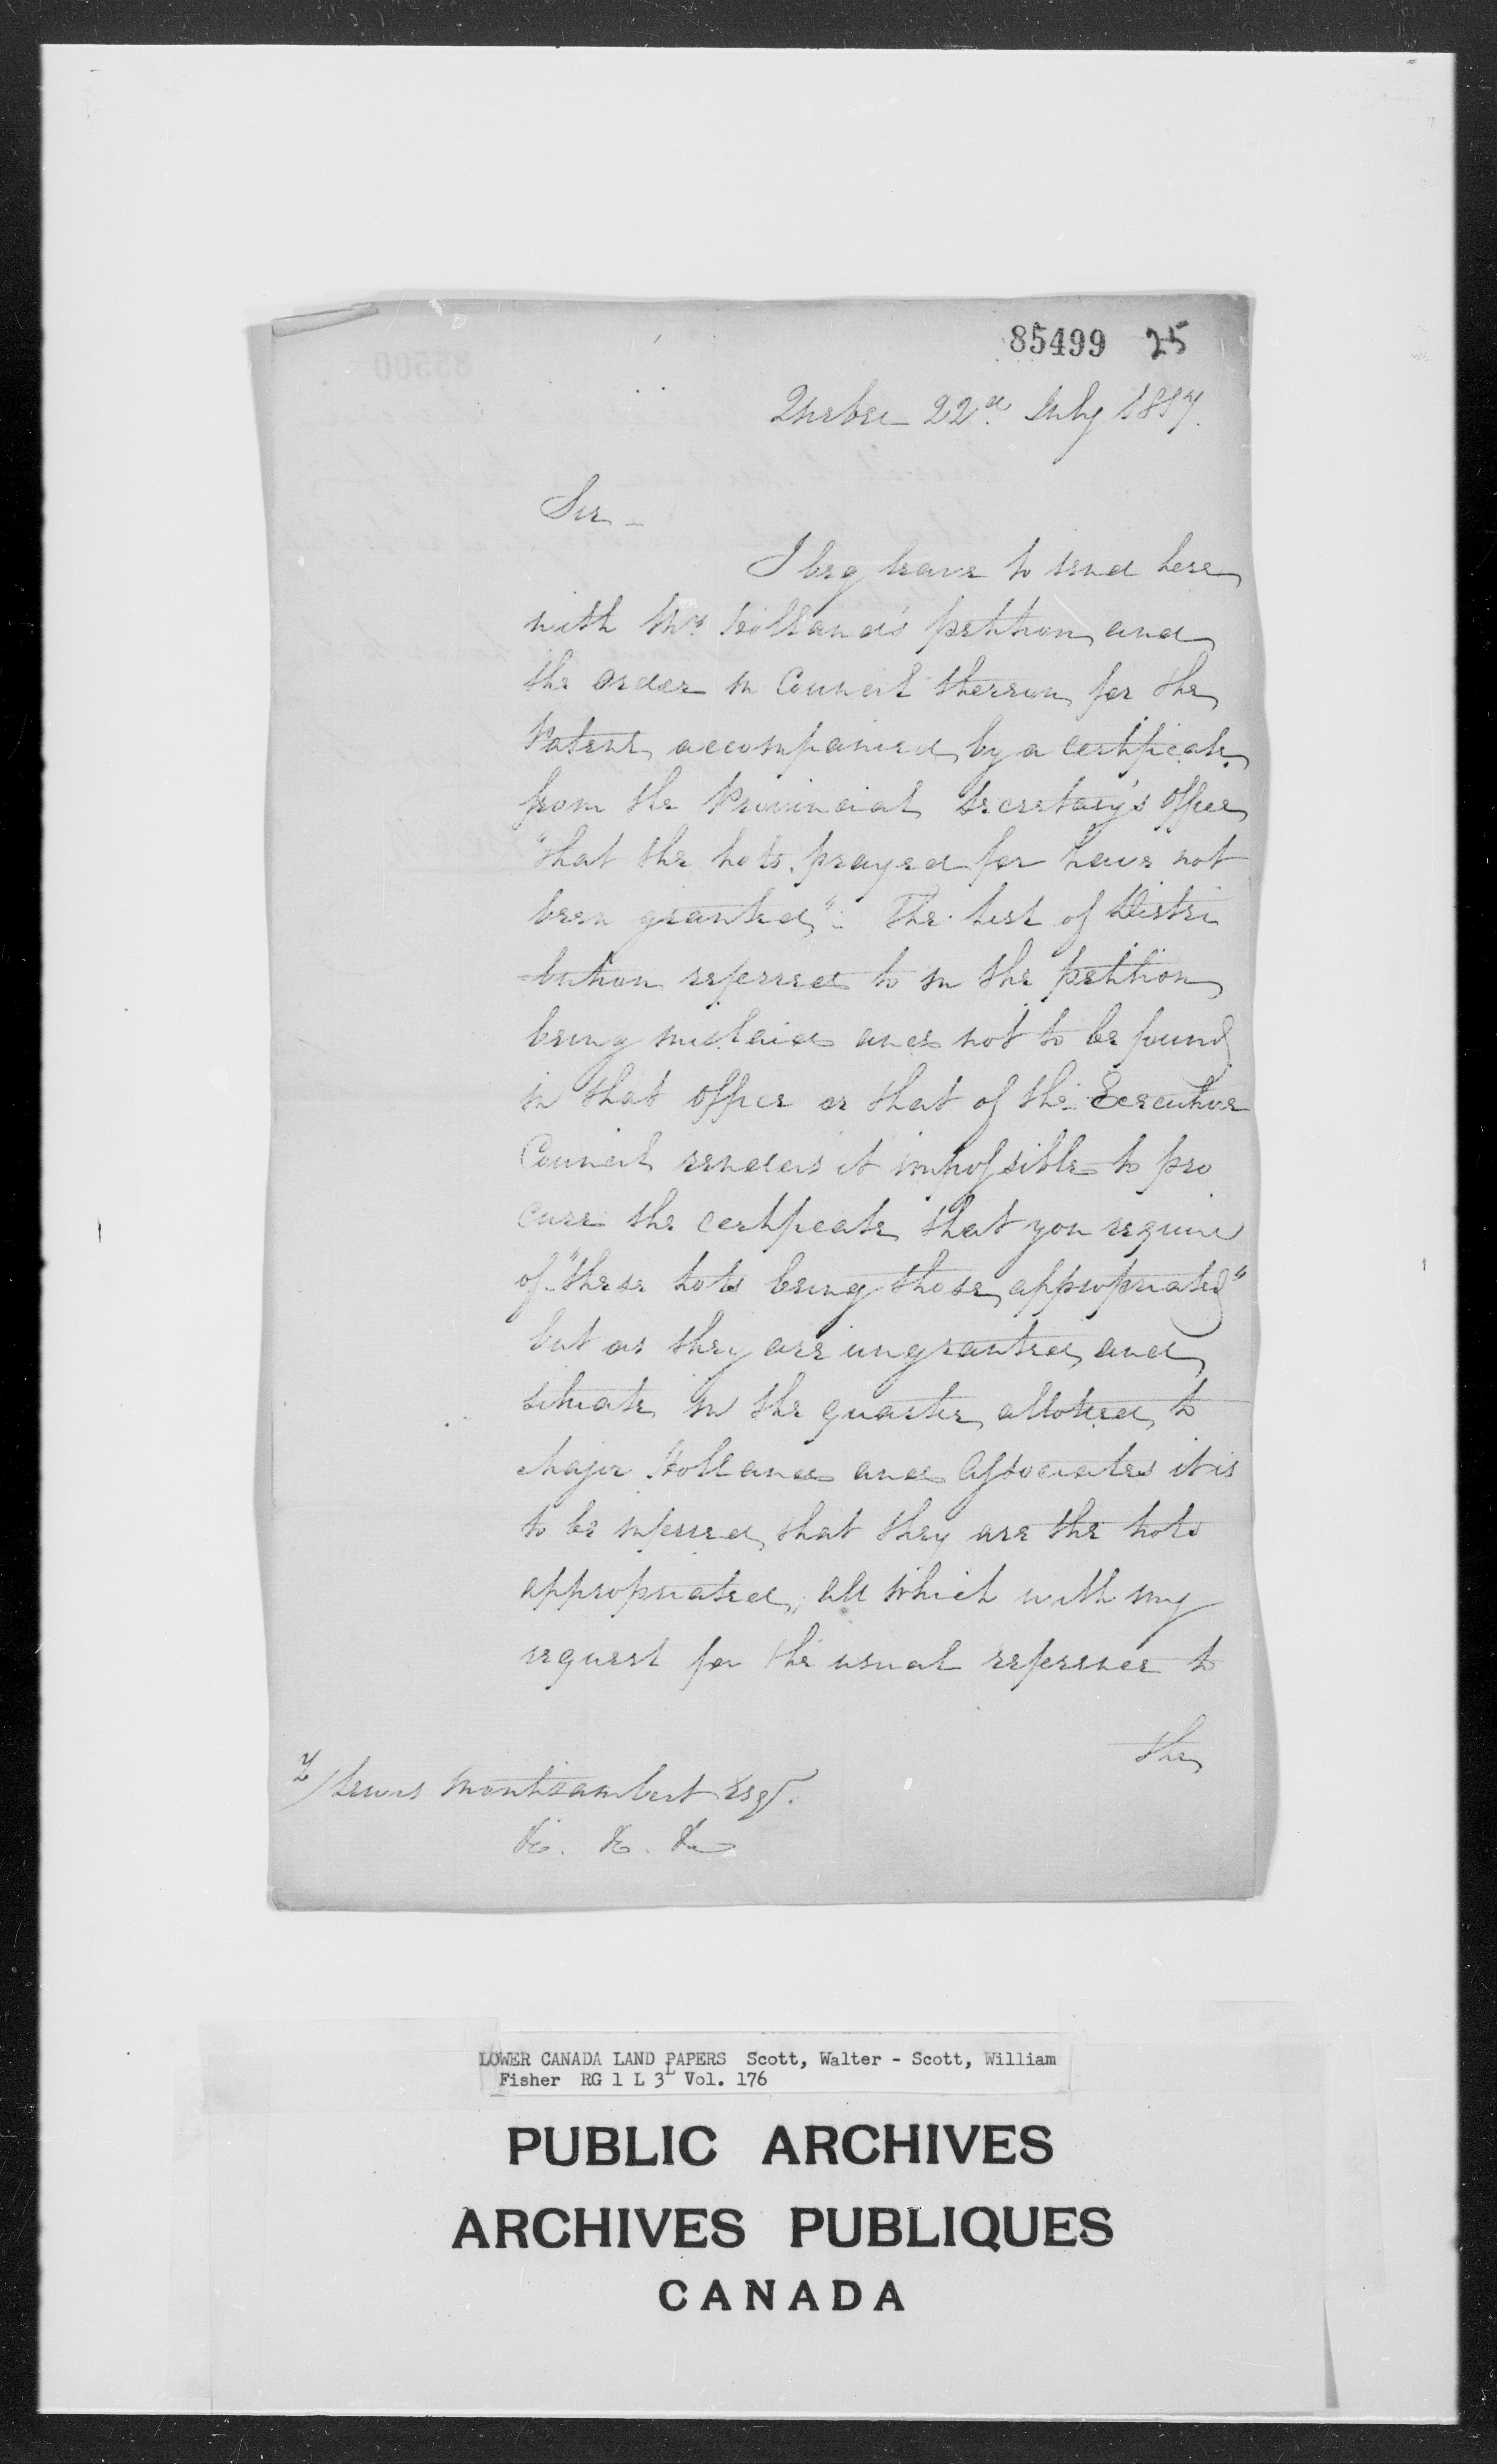 85499 25
Quebec 22d. July 1817.
Sir -
I beg leave to send here
with Mr. Holland's petition and
the order in Council thereon for the
Patent, accompanied by a certificate
from the Provincial Secretary's Office
"that the Lots prayed for have not
been granted". The List of Distri
-bution referred to in the petition
being mislaid and not to be found
in that Office or that of the Executive
Council renders it impossible to pro
cure the certificate that you require
of "these Lots being those appropriated"
but as they are ungranted, and
situate in the quarter allotted to
Major Holland and Associates it is
to be inferred that they are the Lots
appropriated, all which with my
request for the usual reference to
the
Lewis Montizambert Esqr.
&c. &c. &c
LOWER CANADA LAND PAPERS Scott, Walter - Scott, William
Fisher RG 1 L 3L Vol. 176
PUBLIC ARCHIVES
ARCHIVES PUBLIQUES
CANADA